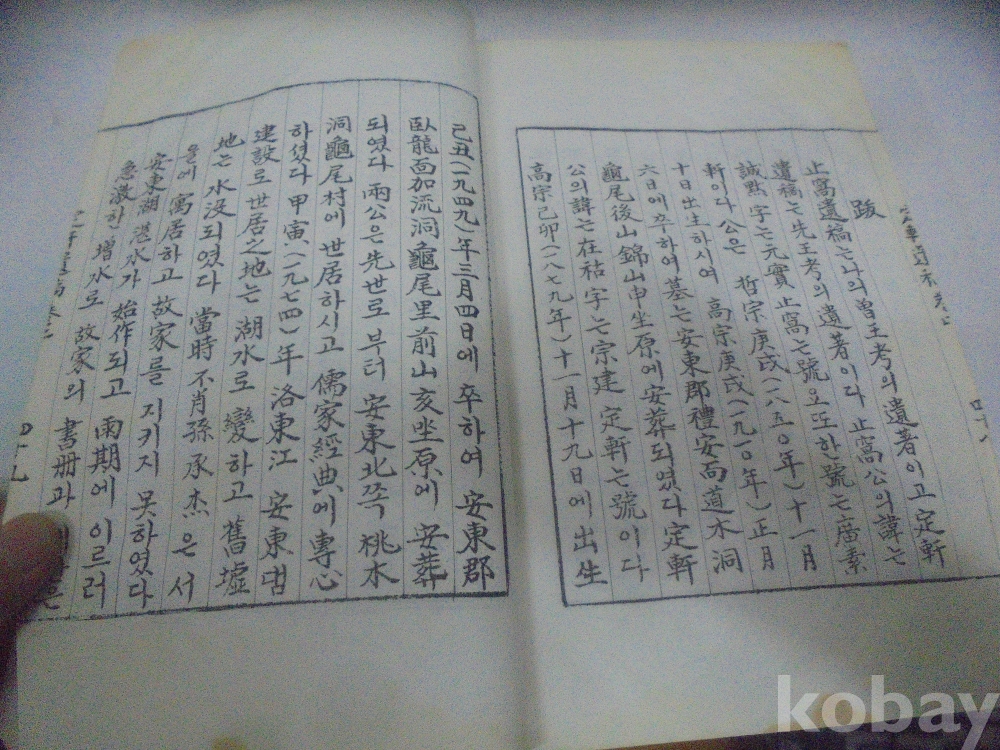 跋
止窩遺稿는나의曾王考의遺著이고定軒
遺稿는先王考의遺著이다 止窩公의諱는
誠點字는元實止窩는號요또한號는廣素
軒이다 公은 哲宗庚戌(一八五○年)十一月
十日出生하시여 高宗庚戌(一九一○年)正月
六日에卒하여墓는安東郡禮安面道木洞
龜尾後山錦山申坐原에安葬되였다定軒
公의諱는在秸字는宗建 定軒는號이다
高宗己卯(一八七九年)十一月十九日에出生
四十八
己丑(一九四九)年三月四日에 卒하여 安東郡
臥龍面加流洞龜尾里前山亥坐原에 安葬
되였다 兩公은先世로부터 安東北쪽 桃木
洞龜尾村에 世居하시고 儒家經典에專心
하셨다 甲寅(一九七四)年 洛東江 安東댐
建設로世居之地는 湖水로 變하고 舊墟
地는 水没되였다 當時不肖孫承杰은 서
울에 寓居하고 故家를 지키지 못하였다
安東湖 湛水가 始作되고 雨期에 이르러
急激한 增水로 故家의 書册과
四十九
kobay